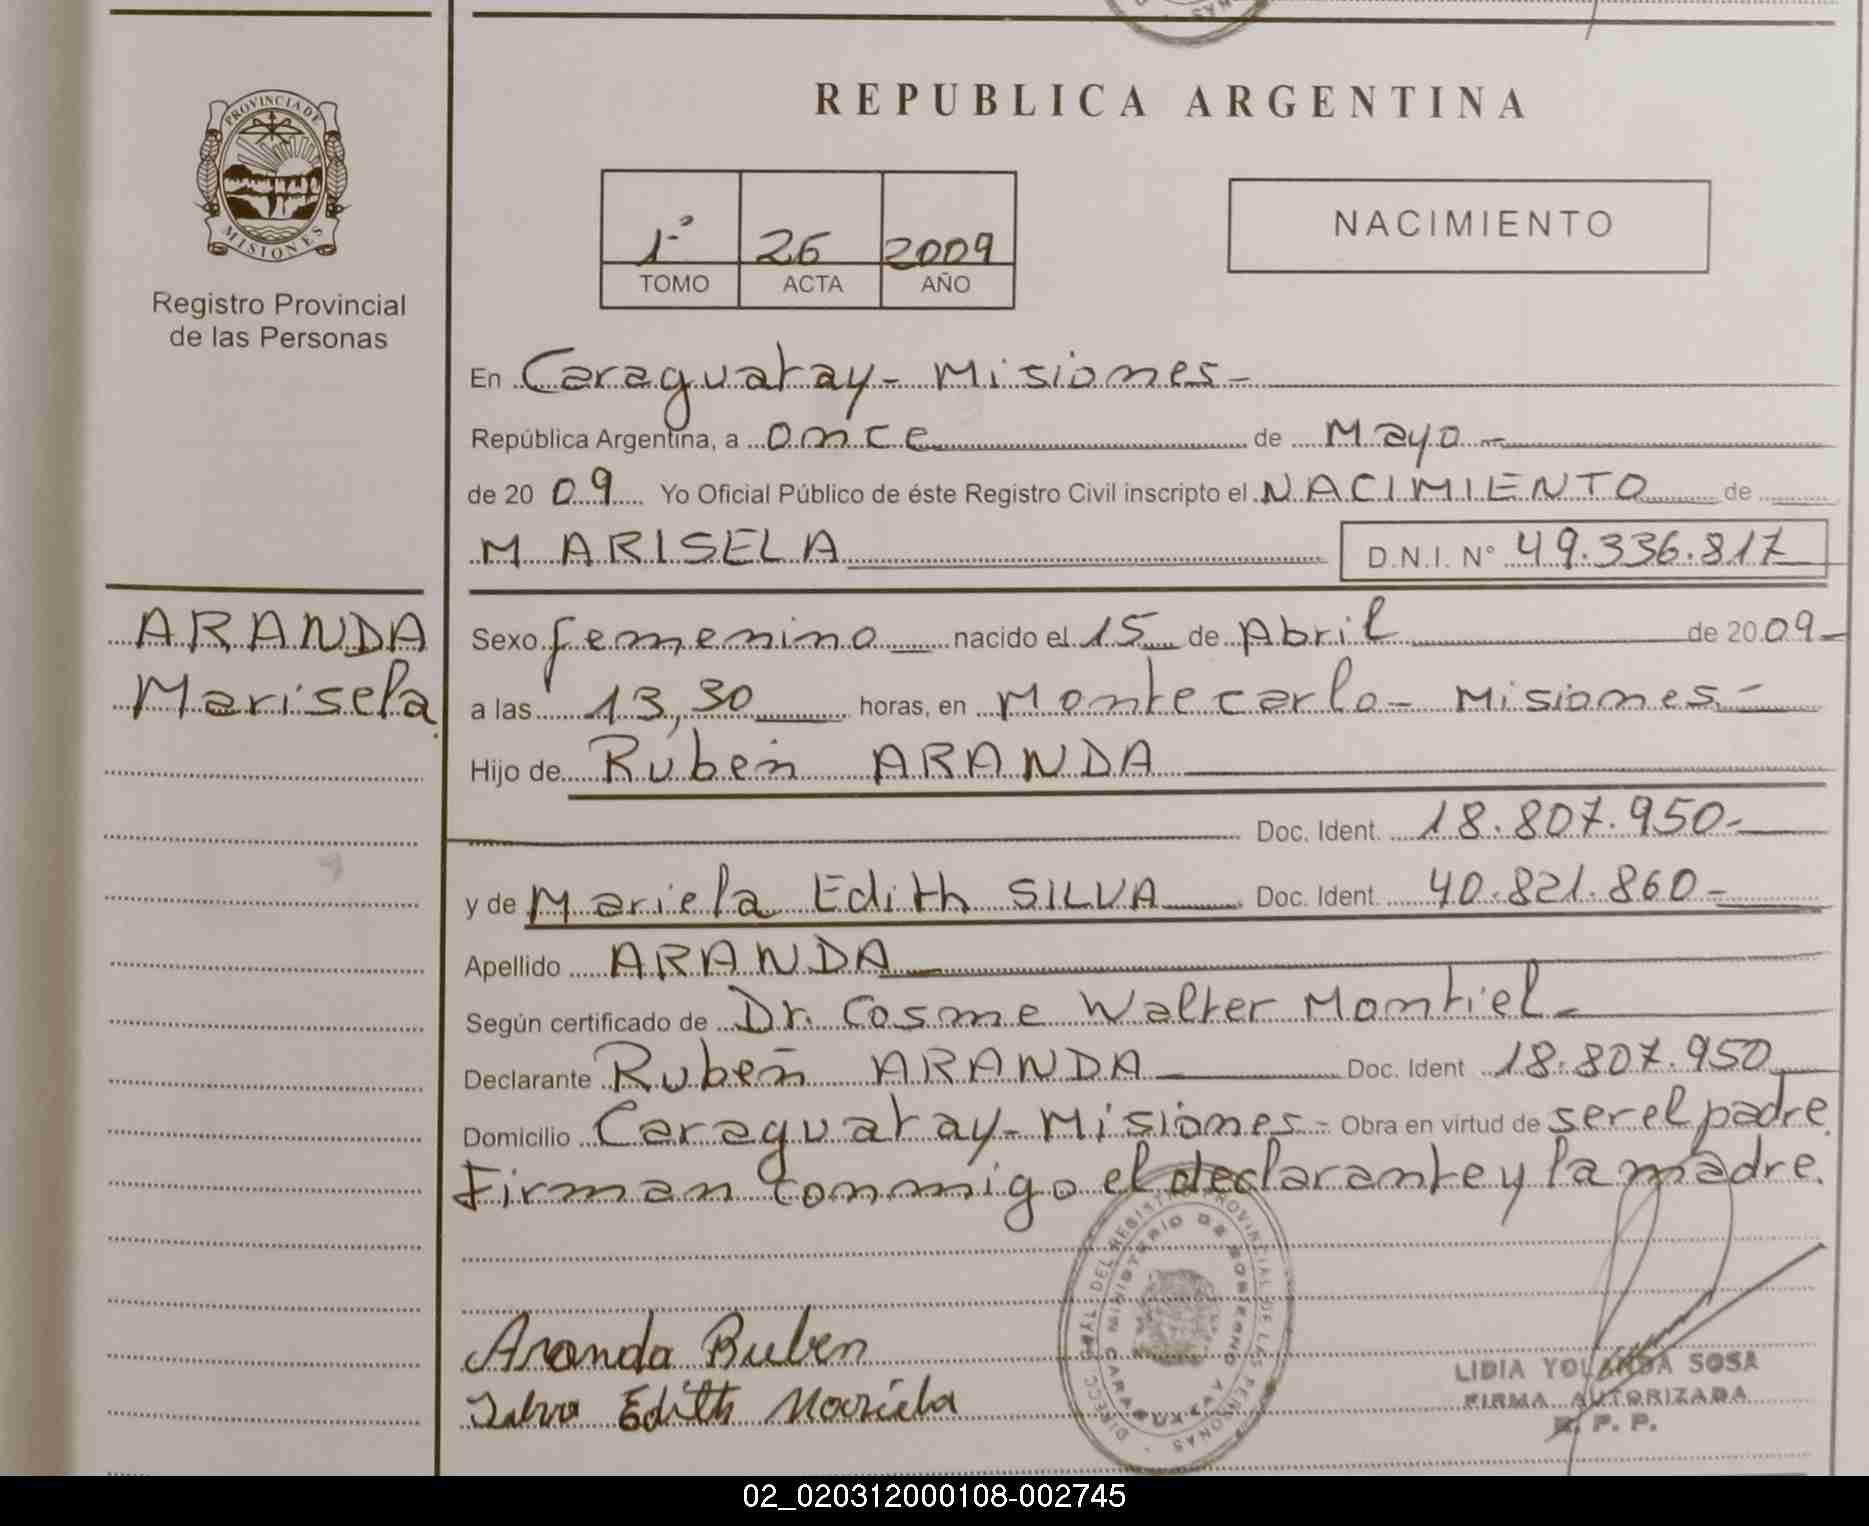 REPUBLICA ARGENTINA
PROVINCIA DE
MISIONES
Registro Provincial
de las Personas
1º 26 2009
TOMO ACTA AÑO
NACIMIENTO
En Caraguatay - Misiones -
República Argentina, a once de Mayo -
de 20 09 Yo Oficial Público de éste Registro Civil inscripto el NACIMIENTO de
MARISELA D.N.I. N° 49.336.817
ARANDA
Marisela
Sexo femenino nacido el 15 de Abril de 20 09 -
a las 13,30 horas, en Montecarlo - Misiones -
Hijo de Rubén ARANDA
Doc. Ident. 18.807.950 -
y de Mariela Edith SILVA Doc. Ident. 40.821.860 -
Apellido ARANDA
Según certificado de Dr. Cosme Walter Montiel -
Declarante Rubén ARANDA Doc. Ident 18.807.950
Domicilio Caraguatay - Misiones - Obra en virtud de ser el padre.
Firman conmigo el declarante y la madre.
Aranda Ruben
Silva Edith Mariela
LIDIA YOLANDA SOSA
FIRMA AUTORIZADA
R. P. P.
02_020312000108-002745